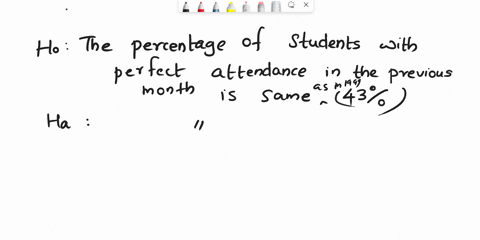 Ho: The percentage of Students with
perfect attendance in the previous
month is same as in 1997 (43%)
Ha: "